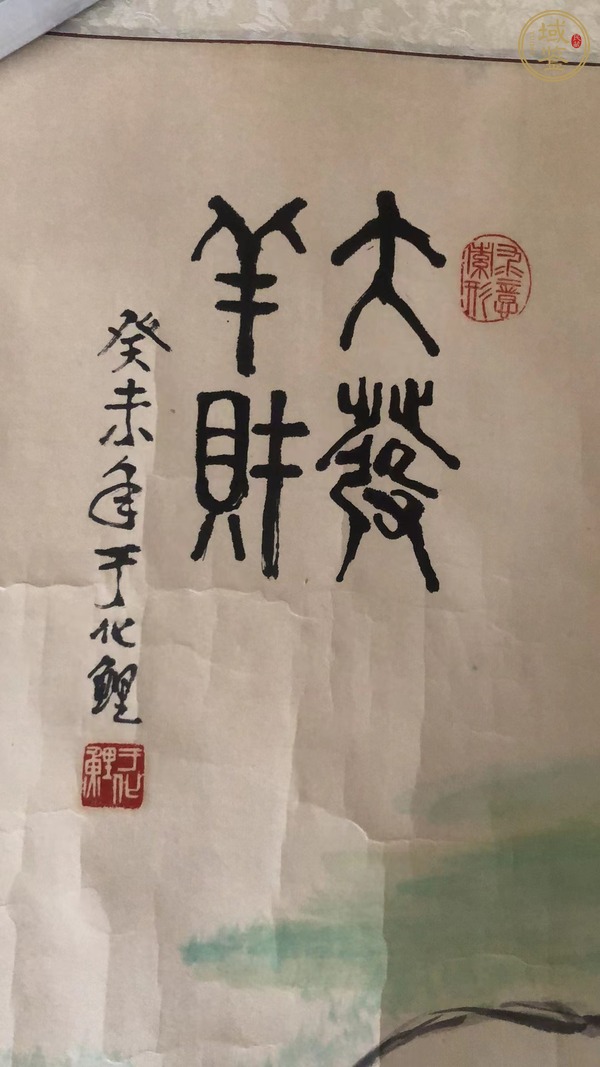 大發
羊財
癸未年于化鯉
于化鯉